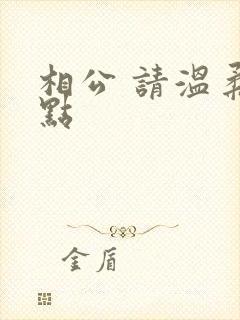 相公 請溫柔
點
金盾